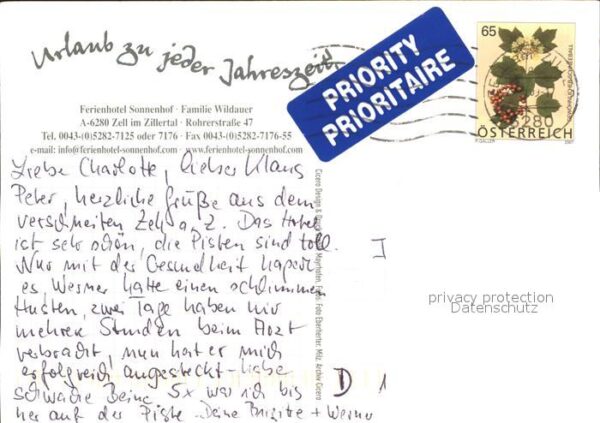 Urlaub zu jeder Jahreszeit.
PRIORITY
PRIORITAIRE
65
6280
ÖSTERREICH
P. SALZER 2007
Ferienhotel Sonnenhof · Familie Wildauer
A-6280 Zell im Zillertal · Rohrerstraße 47
Tel. 0043-(0)5282-7125 oder 7176 · Fax 0043-(0)5282-7176-55
e-mail: info@ferienhotel-sonnenhof.com · www.ferienhotel-sonnenhof.com
Liebe Charlotte, lieber Klaus
Peter, herzliche Grüße aus dem
verschneiten Zell a. Z. Das Hotel
ist sehr schön, die Pisten sind toll.
Nur mit der Gesundheit hapert
es Werner hatte einen schlimmen
Husten, zwei Tage haben wir
mehrere Stunden beim Arzt
verbracht, nun hat er mich
erfolgreich angesteckt - habe
schwache Beine 5x war ich bis
her auf der Piste - Deine Brigitte + Werner
D 1
Cicero Design &
Mayrhofen,
Foto Eberharter, Mzg. Archiv Cicero
privacy protection
Datenschutz